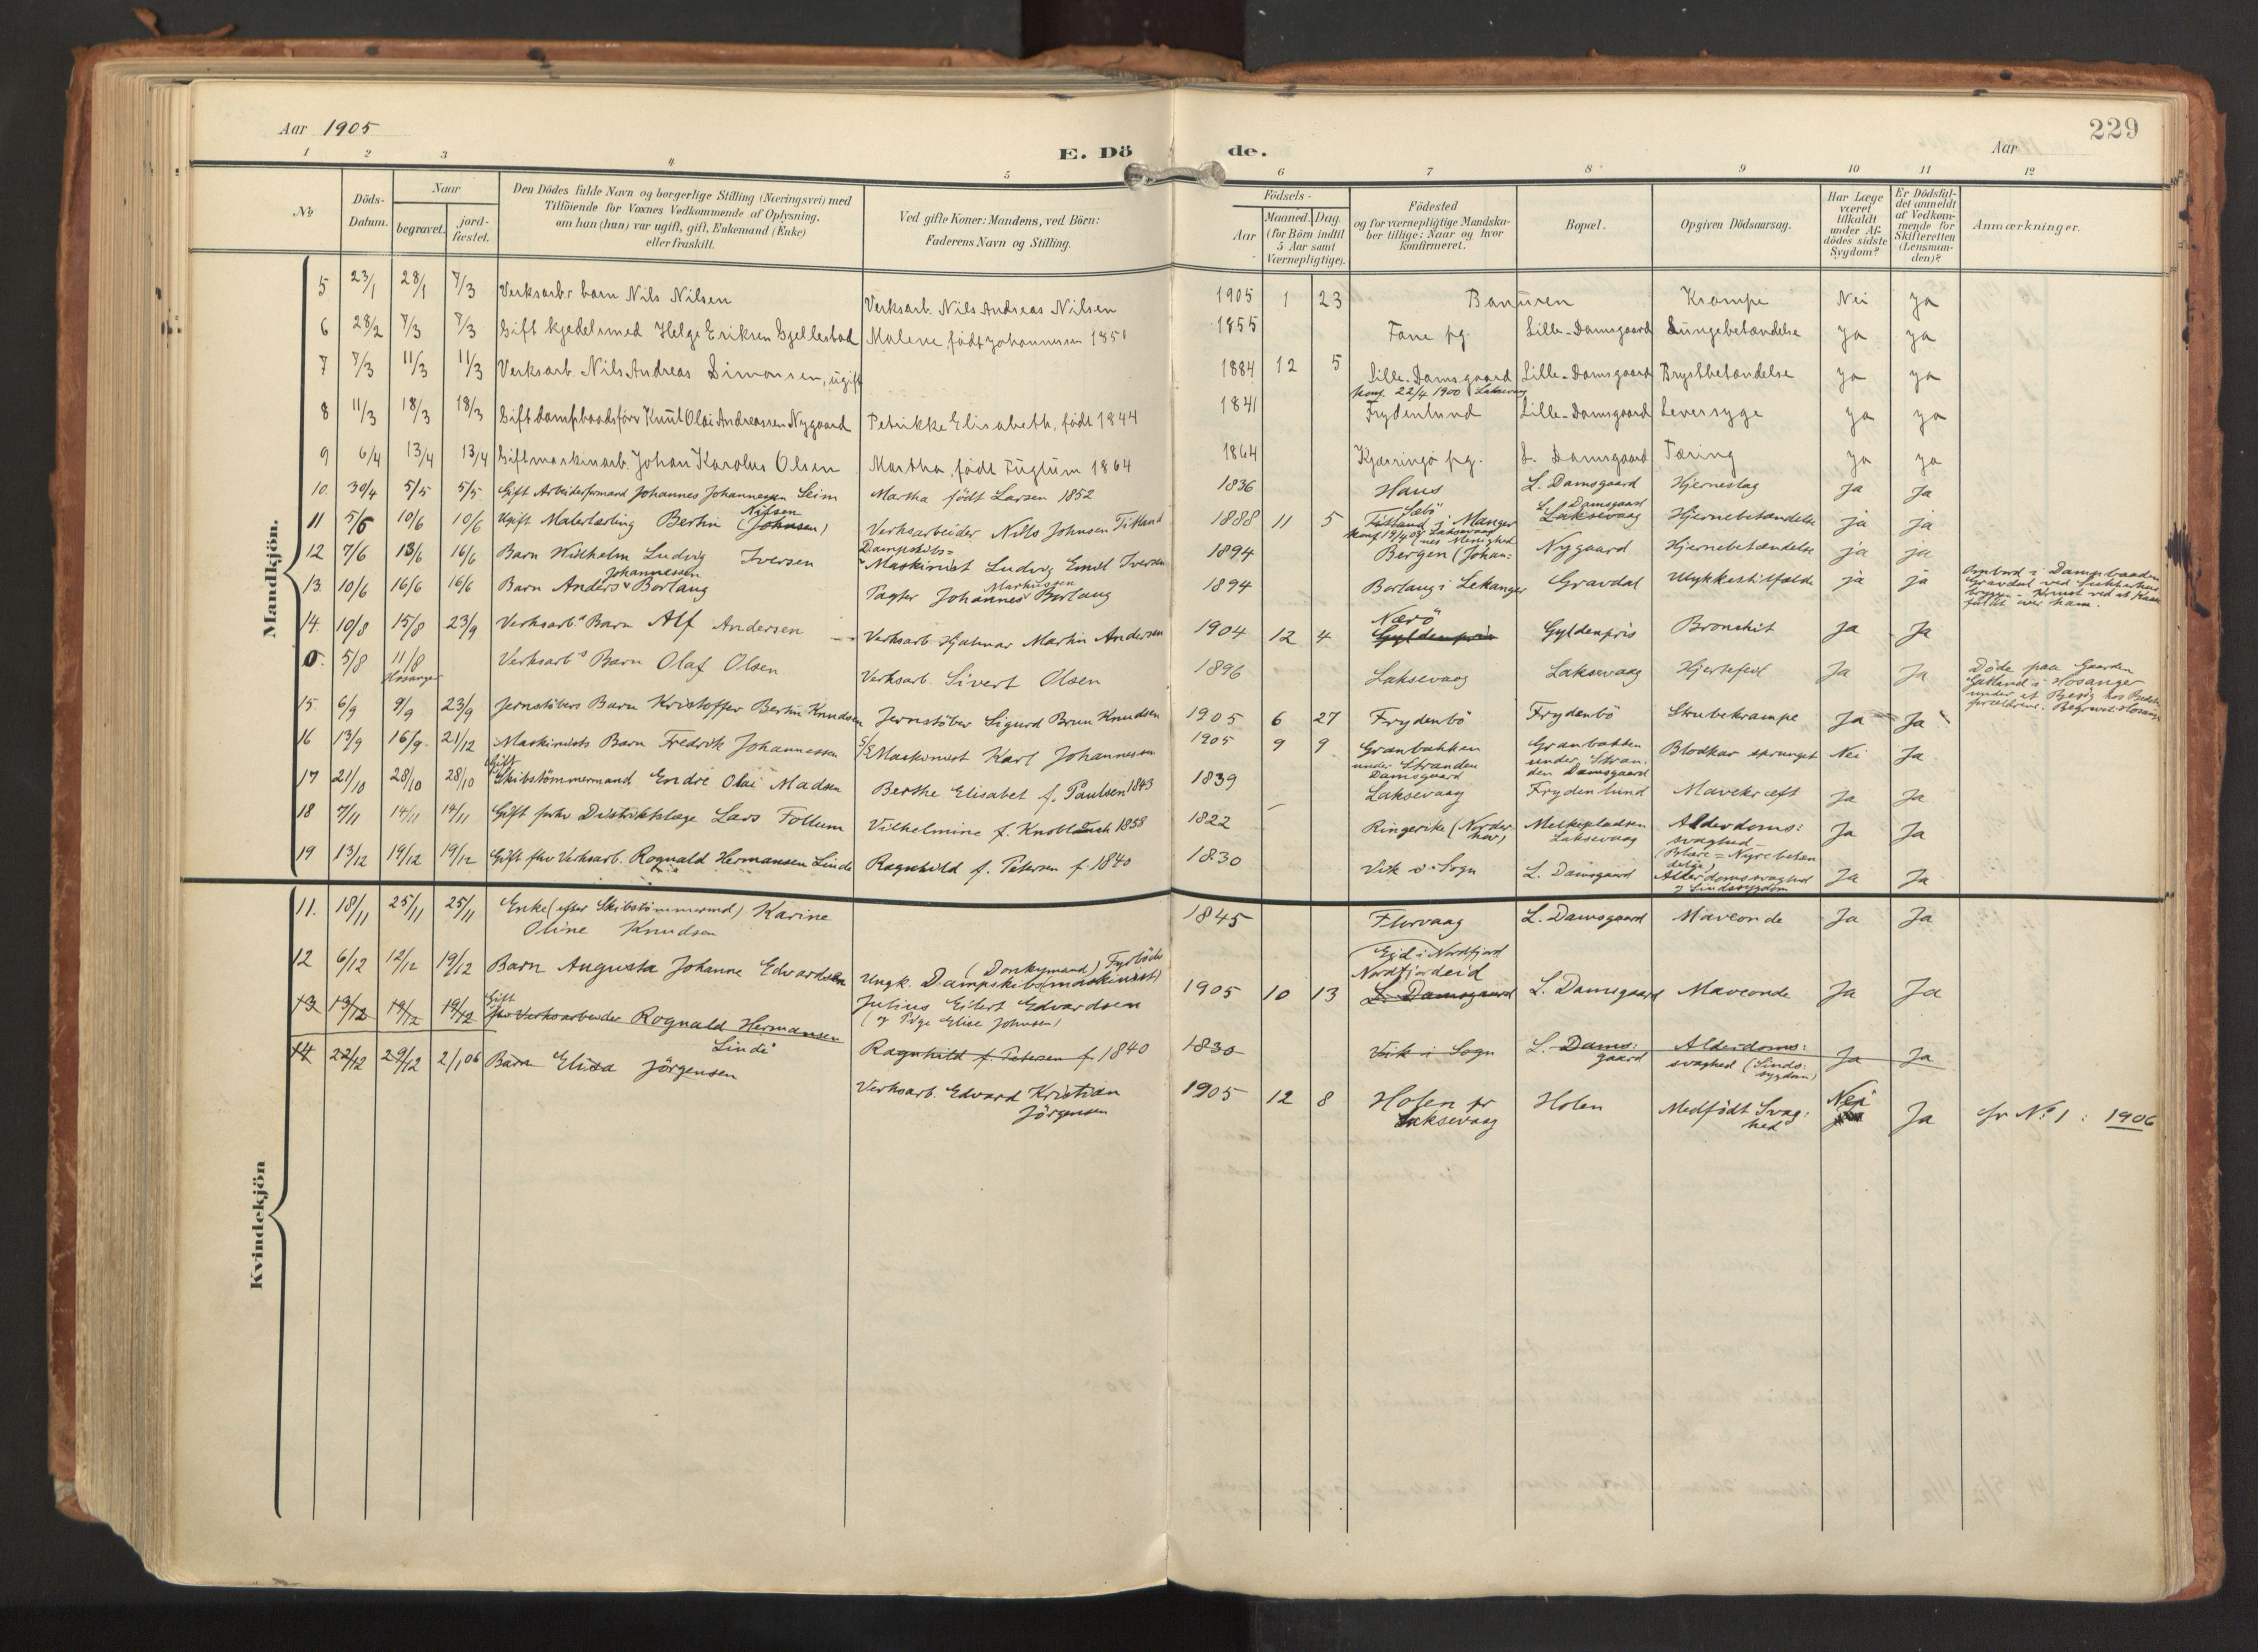 Aar 1905
229
E. Dö de.
Aar
1 2 3 4 5 6 7 8 9 10 11 12
No
Döds-Datum.
Naar
begravet.
jord-fæstet.
Den Dödes fulde Navn og borgerlige Stilling (Næringsvei) med
Tilföiende for Voxnes Vedkommende af Oplysning,
om han (hun) var ugift, gift, Enkemand (Enke)
eller fraskilt.
Ved gifte Koner: Mandens, ved Börn:
Faderens Navn og Stilling.
Födsels-
Aar
Maaned. Dag.
(for Börn indtil
5 Aar samt
Værnepligtige).
Födested
og for værnepligtige Mandska-
ber tillige: Naar og hvor
Konfirmeret.
Bopæl.
Opgiven Dödsaarsag.
Har Læge
været
tilkaldt
under Af-
dödes sidste
Sygdom?
Er Dödsfal-
det anmeldt
af Vedkom-
mende for
Skifteretten
(Lensman-
den)?
Anmærkninger.
Mandkjön.
5 23/1 28/1 7/3 Verksarbr barn Nils Nilsen Verksarb. Nils Andreas Nilsen 1905 1 23 Banuren Krampe Nei ja
6 28/2 7/3 7/3 Gift kjedelsmed Helge Eriksen Gjellestad Malene, født Johannesen 1851 1855 Fane pg. Lille-Damsgaard Lungebetændelse ja ja
7 7/3 11/3 11/3 Verksarb. Nils Andreas Simonsen, ugift 1884 12 5 Lille-Damsgaard Lille-Damsgaard Brystbetændelse ja ja
Konf. 22/4 1900 Laksevaag
8 11/3 18/3 18/3 Gift dampbaadsförer Knut Olai Andreassen Nygaard Petrikke Elisabeth, født 1844 1841 Frydenlund Lille-Damsgaard Leversyge ja ja
9 6/4 13/4 13/4 Gift maskinarb. Johan Karolus Olsen Martha, født Fuglum 1864 1864 Kjærringö pg. L. Damsgaard Tæring ja ja
10. 30/4 5/5 5/5 Gift Arbeiderformand Johannes Johannessen Seim Martha født Larsen 1852 1836 Haus L. Damsgaard Hjerneslag ja ja
11 5/6 10/6 10/6 Ugift Malerlærling Bertin Nilsen (Johnsen) Verksarbeider Nils Johnsen 1888 11 5 i Manger L. Damsgaard Laksevaag Hjernebetændelse ja ja
12 7/6 13/6 16/6 Barn Wilhelm Ludvig Iversen Dampskibs= Maskinist Ludvig Emil Iversen 1894 Bergen (Johan= nes Menighed Nygaard Hjernebetændelse ja ja
13. 10/6 16/6 16/6 Barn Anders Johannessen Borlaug Pagter Johannes Markussen Borlaug 1894 Borlaug i Lekanger Gravdal Ulykkestilfælde ja ja
14. 10/8 15/8 23/9 Verksarb.s Barn Alf Andersen Verksarb. Hjalmar Martin Andersen 1904 12 4 Nærö Gyldenpris Gyldenpris Bronchit ja ja
0. 5/8 11/8 Hosanger Verksarb.s Barn Olaf Olsen Verksarb. Sivert Olsen 1896 Laksevaag Laksevaag Hjertefeil Ja Ja Döde paa Gaarden
i Hosanger
under et Besög hos
15. 6/9 9/9 23/9 Jernstöbers Barn Kristoffer Bertin Knudsen Jernstöber Sigurd Brun Knudsen 1905 6 27 Frydenbö Frydenbö Strubekrampe Ja Ja
16 13/9 16/9 21/12 Maskinists Barn Fredrik Johannessen S/S Maskinist Karl Johannessen 1905 9 9 Granbakken
under Stranden
Damsgaard Granbakken
under Stran-
den Damsgaard Blodkar sprunget Nei Ja
17 21/10 28/10 28/10 Gift Skibstömmermand Endre Olai Madsen Berthe Elisabet f. Paulsen 1843 1839 Laksevaag Frydenlund Mavekræft Ja Ja
18 7/11 14/11 14/11 Gift forhv Distriktslæge Lars Follum Vilhelmine f. Knoblauch 1838 1822 Ringerike (Norder-
hov) Melkepladsen
Laksevaag Alderdoms:
svaghed Ja Ja
19 13/12 19/12 19/12 Gift fhv Verksarb. Rognald Hermansen Linde Ragnhild f. Petersen f. 1840 1830 Vik i Sogn L. Damsgaard (Blære= Nyrebetæn
delse)
Alderdomssvaghed
og Sindssygdom Ja Ja
Kvindekjön
11. 18/11 25/11 25/11 Enke (efter Skibstömmermd) Karine
Oline Knudsen 1845 Florvaag L. Damsgaard Maveonde Ja Ja
12 6/12 12/12 19/12 Barn Augusta Johanne Edvardsen Ungk. Dampskibs (maskinist)
(Donkymand) Fyrböder
Julius Eilert Edvardsen
(og Pige Elise Johnsen) 1905 10 13 Eid i Nordfjord
Nordfjordeid
L. Damsgaard L. Damsgaard Maveonde Ja Ja
13 13/12 19/12 19/12 Gift fhv Verksarbeider Rognald Hermansen
Linde Ragnhild f. Petersen f. 1840 1830 Vik i Sogn L. Dams:
gaard Alderdoms:
svaghed (Sinds:
sygdom) Ja Ja
14 22/12 29/12 2/1 06 Barn Elisa Jörgensen Verksarb. Edvard Kristian
Jörgensen 1905 12 8 Holen pr
Laksevaag Holen Medfödt Svag:
hed Nei Ja Ja fr No 1: 1906